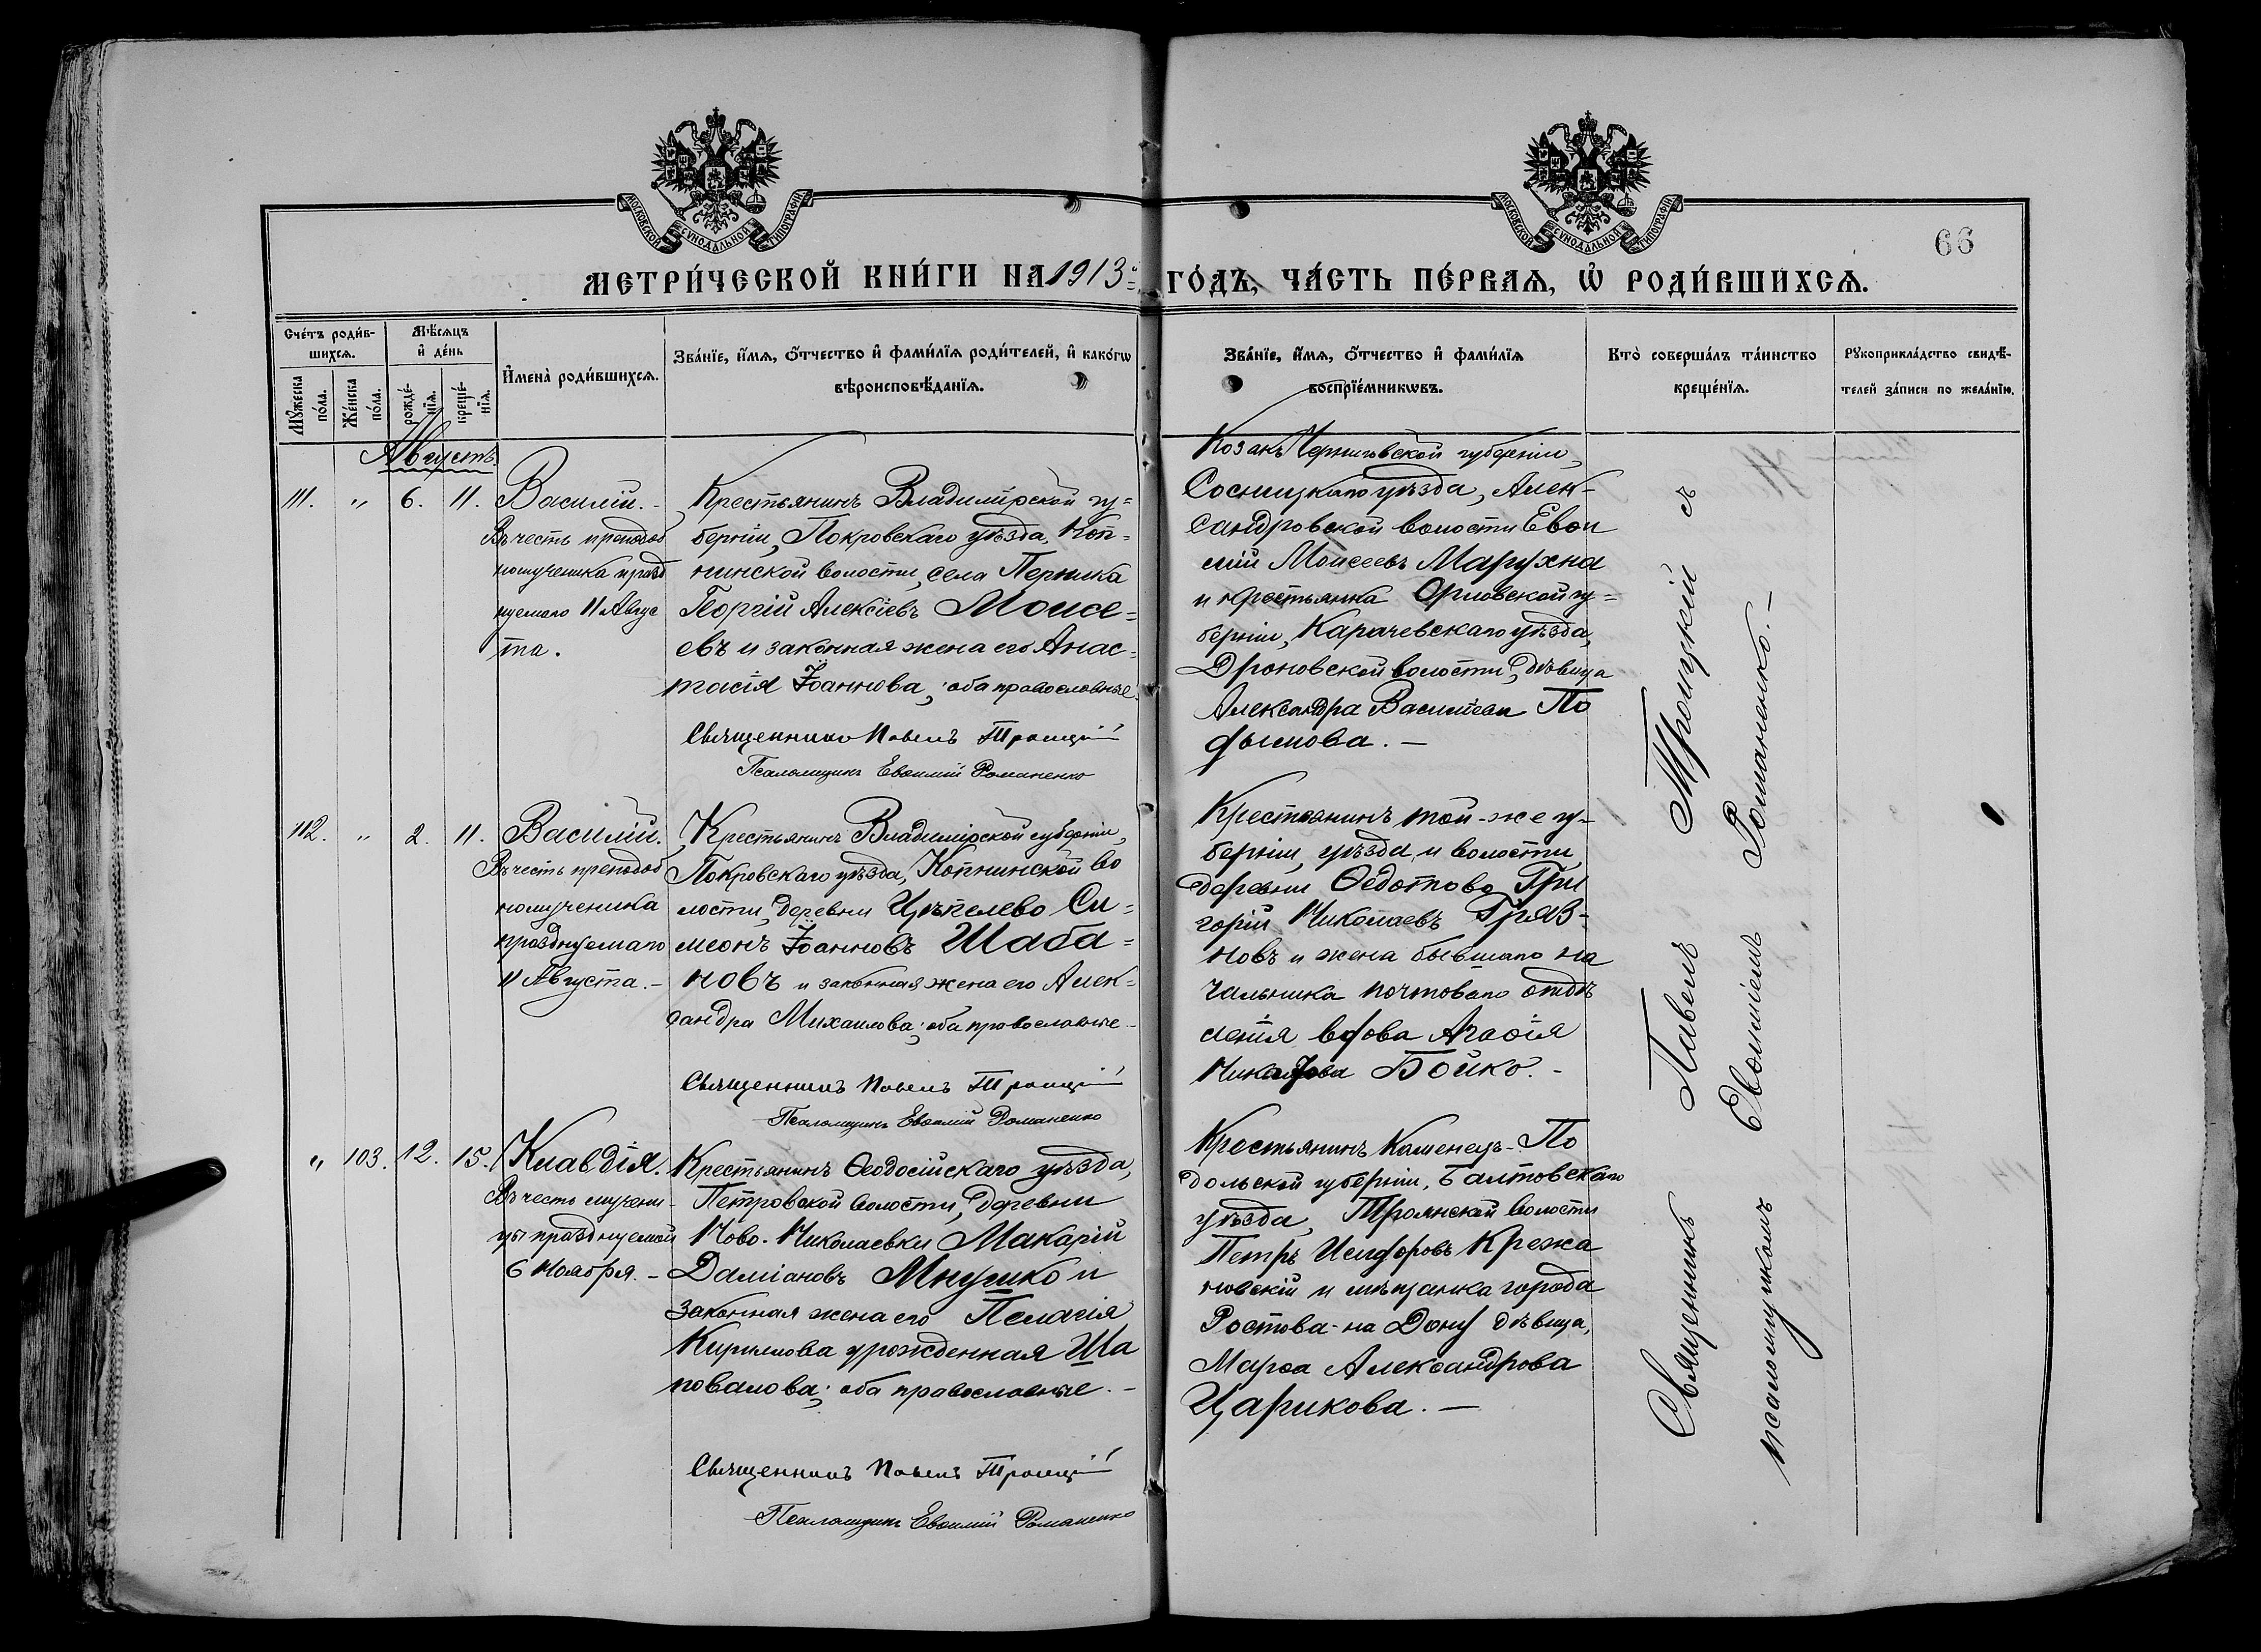 МОСКОВСКОЙ СѴНОДАЛЬНОЙ ТИПОГРАФІИ
МОСКОВСКОЙ СѴНОДАЛЬНОЙ ТИПОГРАФІИ
66
МЕТРИ́ЧЕСКОЙ КНИ́ГИ НА 1913 ГО́ДЪ, ЧА́СТЬ ПЕ́РВАЯ, Ѽ РОДИ́ВШИХСЯ.
Сче́тъ роди́в-
шихся.
Мѣ́сяцъ
и҆ де́нь
Мꙋ́жеска
по́ла.
Же́нска
по́ла.
рожде́-
нїя.
креще́-
нїя.
И҆мена̀ роди́вшихся.
Зва́нїе, и҆́мя, ѻ҆́тчество и҆ фами́лїя роди́телей, и҆ како́гѡ
вѣроисповѣ́данїя.
Зва́нїе, и҆́мя, ѻ҆́тчество и҆ фами́лїя
воспрїе́мникѡвъ.
Кто̀ соверша́лъ та́инство
креще́нїя.
Рꙋкоприкла́дство свидѣ́-
телей за́писи по жела́нїю.
Августъ.
111. " 6. 11. Василій.
Въ честь преподоб
номученика празд
нуемаго 11 Авгус
та.
Крестьянинъ Владимірской гу=
берніи, Покровскаго уѣзда, Коп=
нинской волости, села Перника
Георгій Алексіевъ Моисе=
евъ и законная жена его Анас=
тасія Іоаннова; оба православные.
Священникъ Павелъ Троицкій
Псаломщикъ Евѳимій Романенко
Козакъ Черниговской губерніи,
Сосницкаго уѣзда, Алек-
сандровской волости Евѳи
мій Моисеевъ Марухна
и крестьянка Орловской гу=
берніи, Карачевскаго уѣзда,
Дроновской волости, дѣвица
Александра Васильева По
дымова. —
112. " 2. 11. Василій.
Въ честь преподоб
номученика
празднуемаго
11 Августа. -
Крестьянинъ Владимірской губерніи,
Покровскаго уѣзда, Копнинской во
лости, деревни Цѣпелево Си=
меонъ Іоанновъ Шаба=
новъ и законная жена его Алек=
сандра Михаилова; оба православные.
Священникъ Павелъ Троицкій
Псаломщикъ Евѳимій Романенко
Крестьянинъ той-же гу-
берніи, уѣзда и волости,
деревни Ѳедотово Гри
горій Николаевъ Гряз-
новъ и жена бывшаго на
чальника почтоваго отдѣ
ленія вдова Агаѳія
Бойко. -
" 103. 12. 15. Клавдія.
Въ честь мучени-
цы празднуемой
6 Ноября. -
Крестьянинъ Ѳеодосійскаго уѣзда,
Петровской волости, деревни
Ново-Николаевки Макарій
Даміановъ Мнушко и
законная жена его Пелагія
Кириллова урожденная Ша
повалова; оба православные. -
Священникъ Павелъ Троицкій
Псаломщикъ Евѳимій Романенко
Крестьянинъ Каменецъ-По
дольской губерніи, Балтовскаго
уѣзда, Троянской волости
Петръ Исидоровъ Крежа
новскій и мѣщанка города
Ростова-на Дону дѣвица,
Марѳа Александрова
Царикова. —
Священникъ Павелъ Троицкій съ
псаломщикомъ Евѳиміемъ Романенко. —